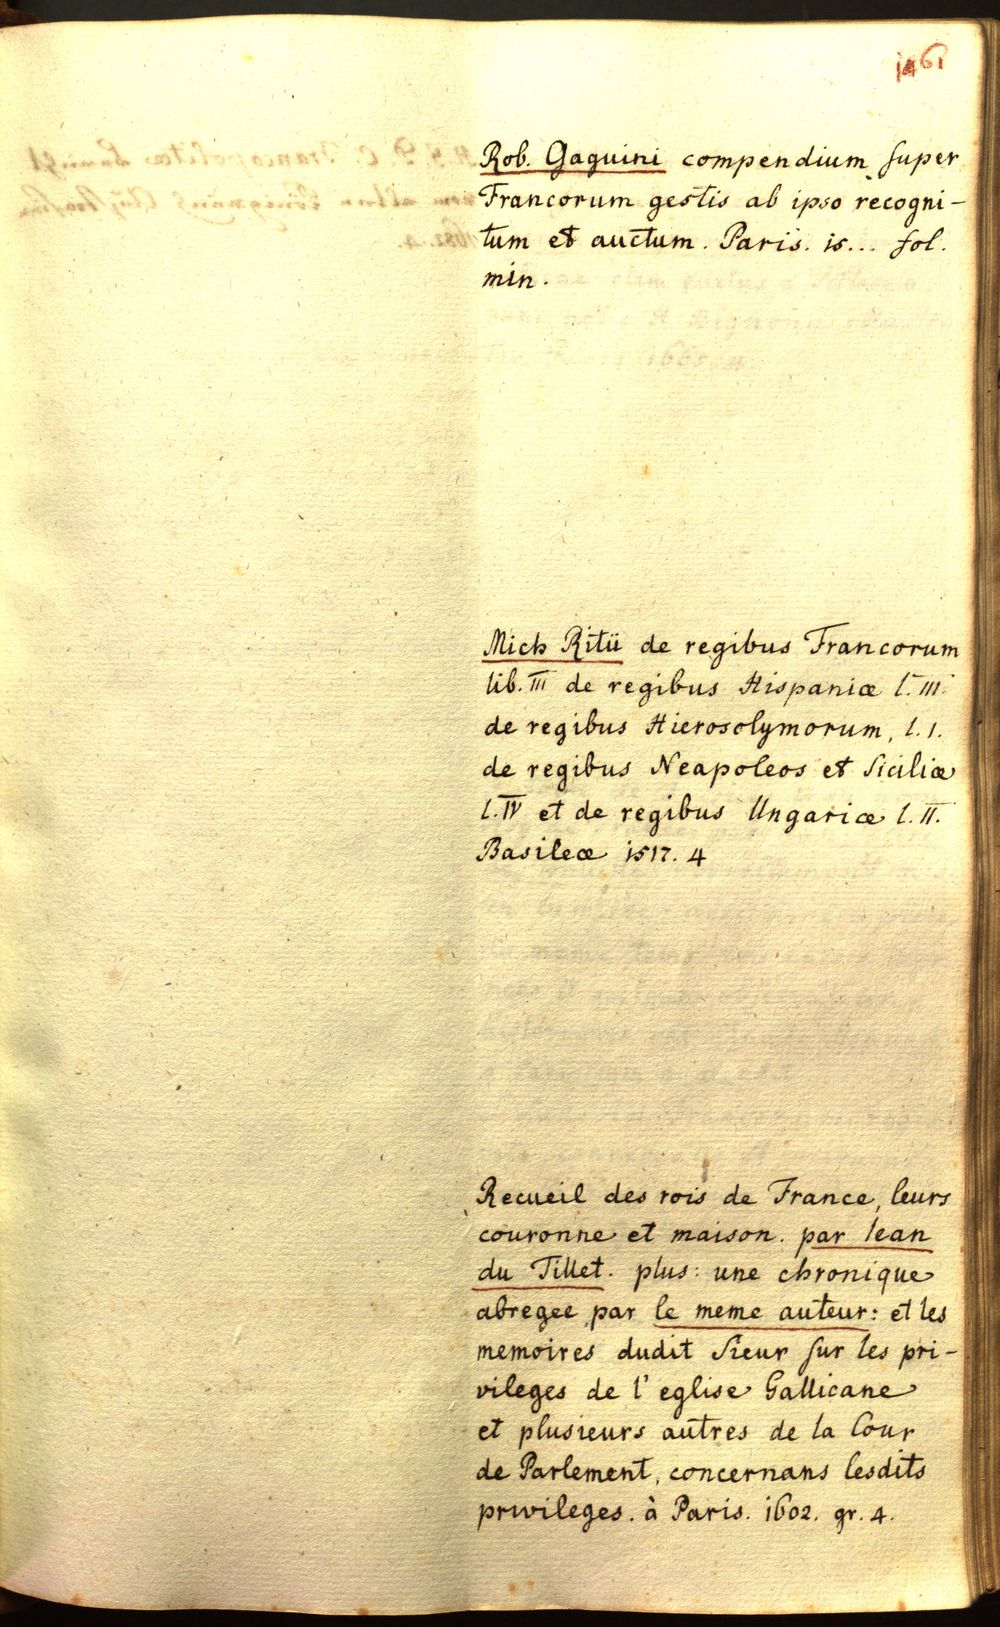 1461
Rob. Gaguini compendium super
Francorum gestis ab ipso recogni-
tum et auctum. Paris. is... fol.
min.
Mich Ritii de regibus Francorum
lib. III de regibus Hispaniæ l. III.
de regibus Hierosolymorum, l. I.
de regibus Neapoleos et Siciliæ
l. IV et de regibus Ungariæ l. II.
Basileæ 1517. 4
Recueil des rois de France, leurs
couronne et maison. par Iean
du Tillet. plus: une chronique
abregee par le meme auteur: et les
memoires dudit Sieur sur les pri-
vileges de l'eglise Gallicane
et plusieurs autres de la Cour
de Parlement, concernans lesdits
privileges. à Paris. 1602. gr. 4.